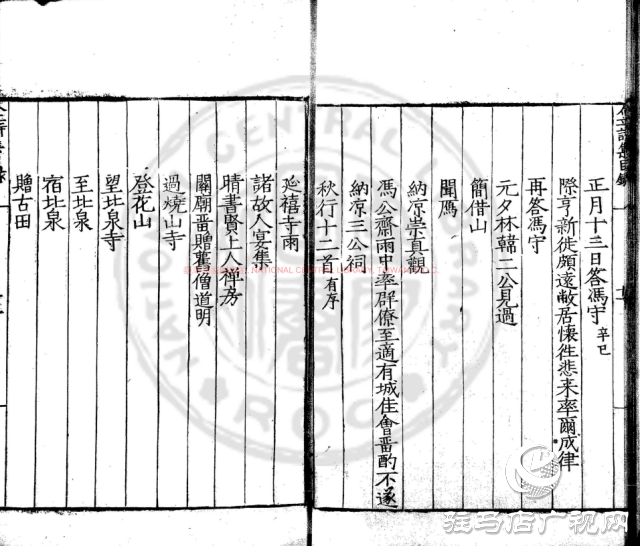 正月十三日答馮守 辛巳
際亨新徙頗遠敝居懷徃悲来率爾成律
再答馮守
元夕林韓二公見過
簡借山
聞鴈
納凉崇真觀
馮公齋雨中率群僚至適有城住會畱酌不遂
納凉三公祠
秋行十二首 有序
延禧寺雨
諸故人宴集
晴書賢上人禅房
關廟畱贈舊僧道明
過燒山寺
登花山
望北泉寺
至北泉
宿北泉
贈古田
NATIONAL CENTRAL LIBRARY, TAIWAN, R.O.C.
驻马店广视网